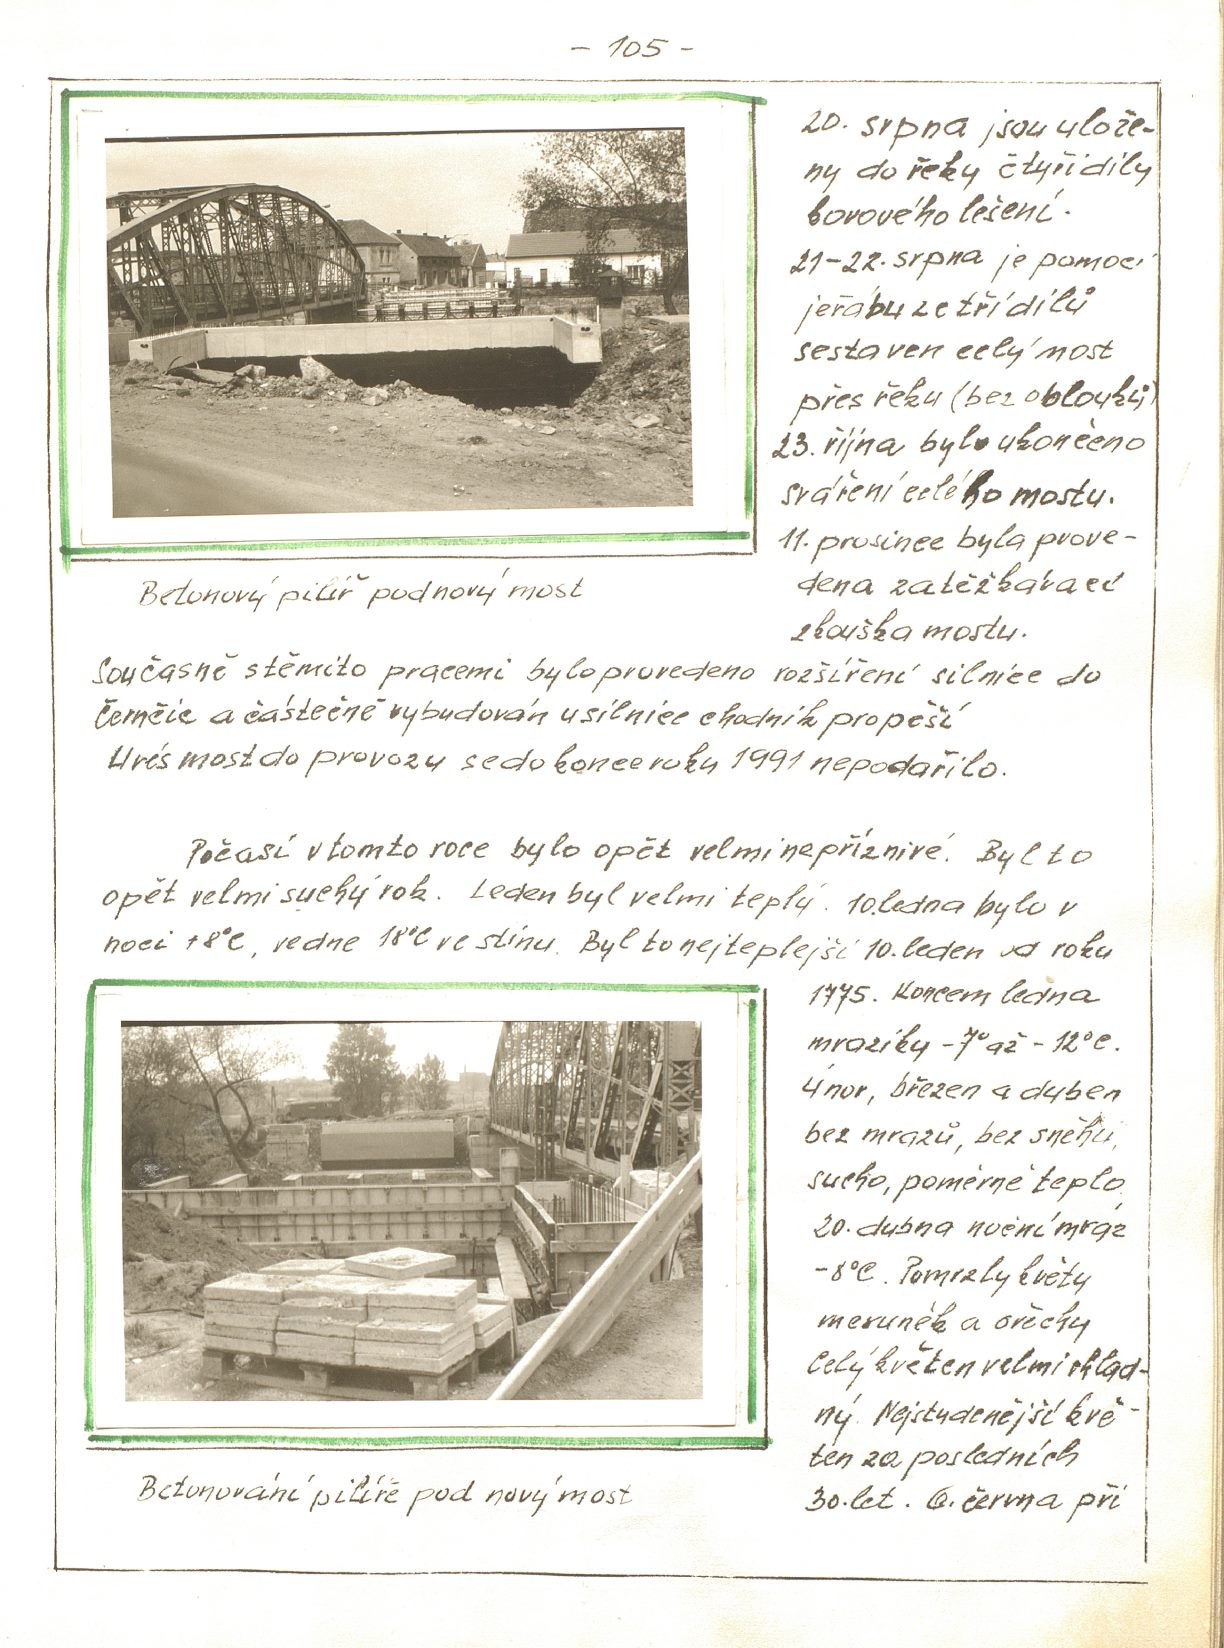 - 105 -
20. srpna jsou ulože-
ny do řeky čtyři díly
borového lešení.
21-22. srpna je pomocí
jeřábu ze tří dílů
sestaven celý most
přes řeku (bez oblouků)
23. října bylo ukončeno
sváření celého mostu.
11. prosince byla prove-
dena zatěžkávací
zkouška mostu.
Betonový pilíř pod nový most
Současně s těmito pracemi bylo provedeno rozšíření silnice do
Černčic a částečně vybudován u silnice chodník pro pěší
Uvés most do provozu se do konce roku 1991 nepodařilo.
Počasí v tomto roce bylo opět velmi nepříznivé. Byl to
opět velmi suchý rok. Leden byl velmi teplý. 10. ledna bylo v
noci +8°C, ve dne 18°C ve stínu. Byl to nejteplejší 10. leden od roku
1775. Koncem ledna
mrazíky -7° až -12°C.
Únor, březen a duben
bez mrazů, bez sněhu,
sucho, poměrně teplo
20. dubna noční mráz
-8°C. Pomrzly květy
meruněk a ořechy
Celý květen velmi chlad-
ný. Nejstudenější kvě-
ten za posledních
30. let. 6. června při
Betonování pilíře pod nový most